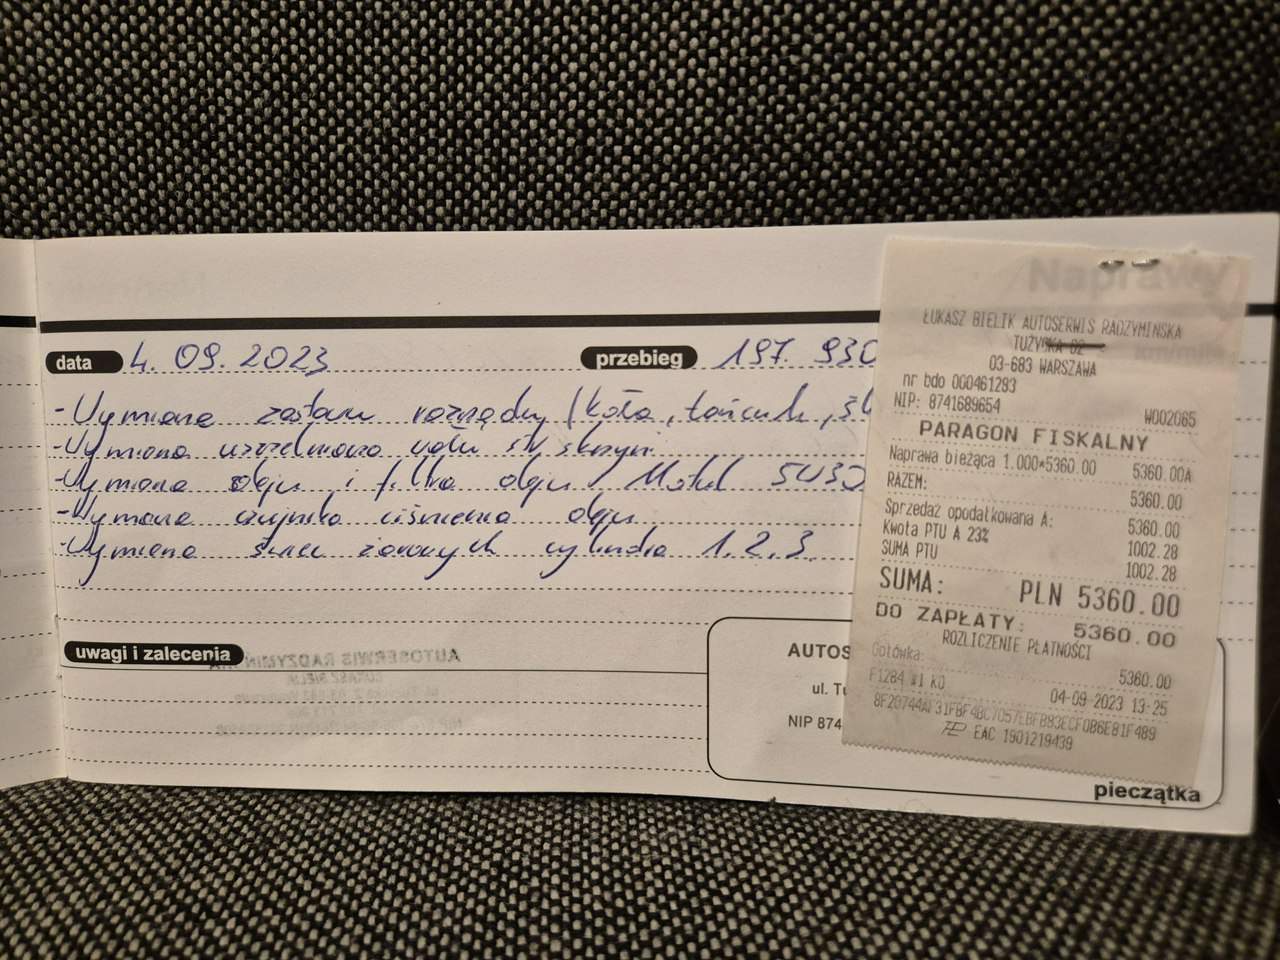 Naprawy
data 4. 09. 2023 przebieg 197. 930
- Wymiana zestawu rozrządu (koła, łańcuch, śl
- Wymiana uszczelniacza wału str skrzyni
- Wymiana oleju i filtra oleju Motul 5W30
- Wymiana czujnika ciśnienia oleju
- Wymiana świec żarowych cylindra 1.2.3
uwagi i zalecenia
AUTOS
ul. Tu
NIP 874
pieczątka
ŁUKASZ BIELIK AUTOSERWIS RADZYMIŃSKA
TUŻYCKA
03-683 WARSZAWA
nr bdo 000461293
NIP: 8741689654 W002065
PARAGON FISKALNY
Naprawa bieżąca 1.000*5360.00 5360.00A
RAZEM: 5360.00
Sprzedaż opodatkowana A: 5360.00
Kwota PTU A 23% 1002.28
SUMA PTU 1002.28
SUMA: PLN 5360.00
DO ZAPŁATY: 5360.00
ROZLICZENIE PŁATNOŚCI
Gotówka: 5360.00
F1284 #1 KO 04-09-2023 13:25
EAC 1901219439